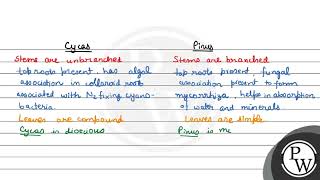 Cycas
Pinus
Stems are unbranched
tap roots present, has algal
association in colloroid root
associated with N2 fixing cyano-
bacteria.
Leaves are compound
Cycas is dioecious
Stems are branched
tap roots present, fungal
association present to form
mycorrhiza, helps in absorption
of water and minerals
Leaves are simple.
Pinus is mo
PW